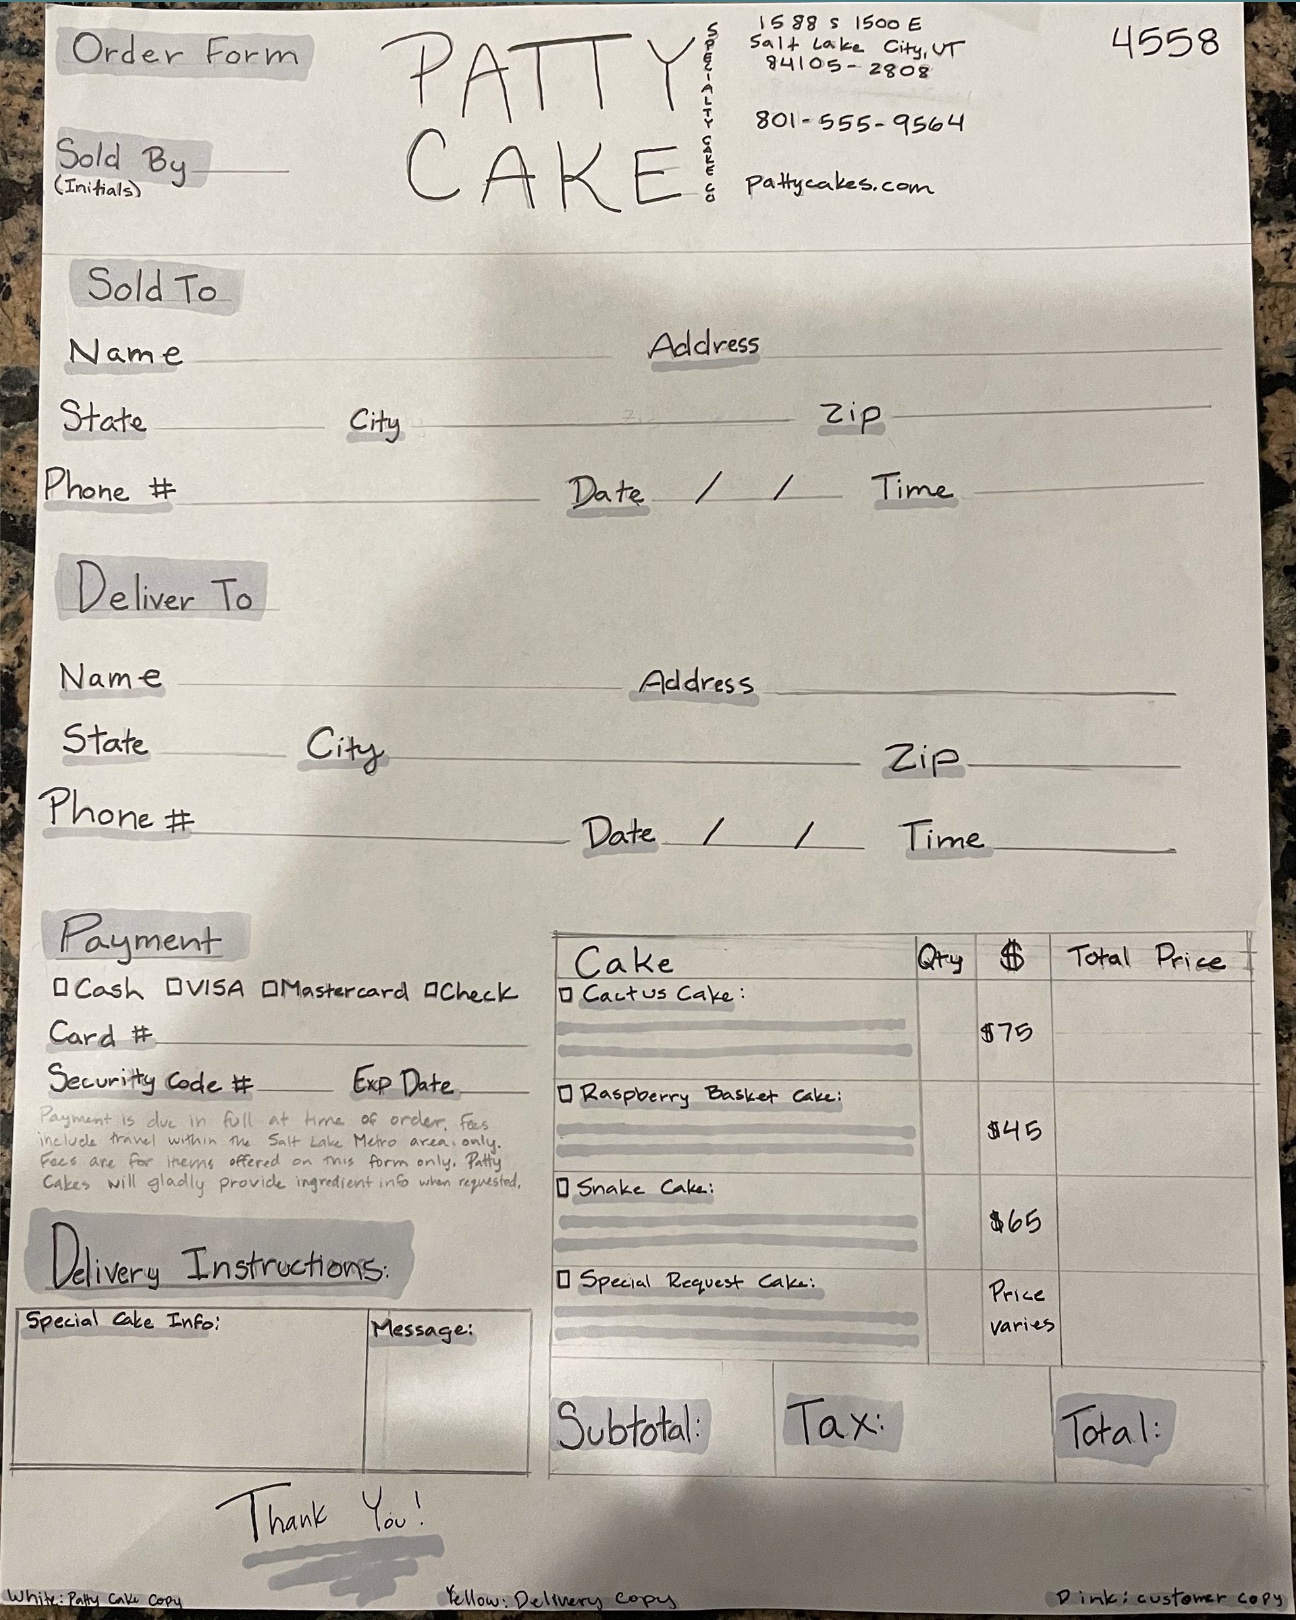 Order Form
PATTY
CAKE
SPECIALTY CAKE CO
1588 S 1500 E
Salt Lake City, UT
84105-2808
801-555-9564
pattycakes.com
4558
Sold By
(Initials)
Sold To
Name Address
State City Zip
Phone # Date / / Time
Deliver To
Name Address
State City Zip
Phone # Date / / Time
Payment
Cash VISA Mastercard Check
Card #
Security Code # Exp Date
Payment is due in full at time of order. Fees
include travel within the Salt Lake Metro area only.
Fees are for items offered on this form only. Patty
Cakes will gladly provide ingredient info when requested.
Delivery Instructions:
Special Cake Info: Message:
Cake Qty $ Total Price
Cactus Cake:
$75
Raspberry Basket Cake:
$45
Snake Cake:
$65
Special Request Cake:
Price
varies
Subtotal: Tax: Total:
Thank You!
White: Patty Cake Copy Yellow: Delivery copy Pink: customer copy